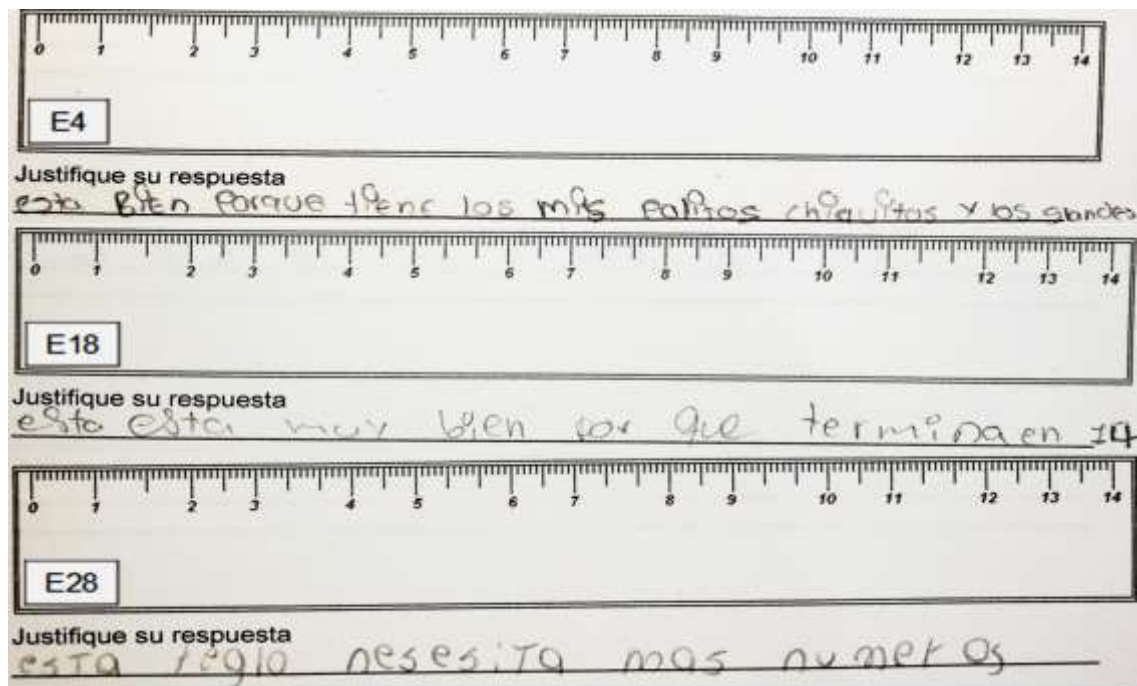 0 1 2 3 4 5 6 7 8 9 10 11 12 13 14
E4
Justifique su respuesta
esta Bien Porque tiene los mis palitos chiquitos y los grandes
0 1 2 3 4 5 6 7 8 9 10 11 12 13 14
E18
Justifique su respuesta
esta esta muy bien por que termina en 14
0 1 2 3 4 5 6 7 8 9 10 11 12 13 14
E28
Justifique su respuesta
esTa regla nesesiTa mas numeros